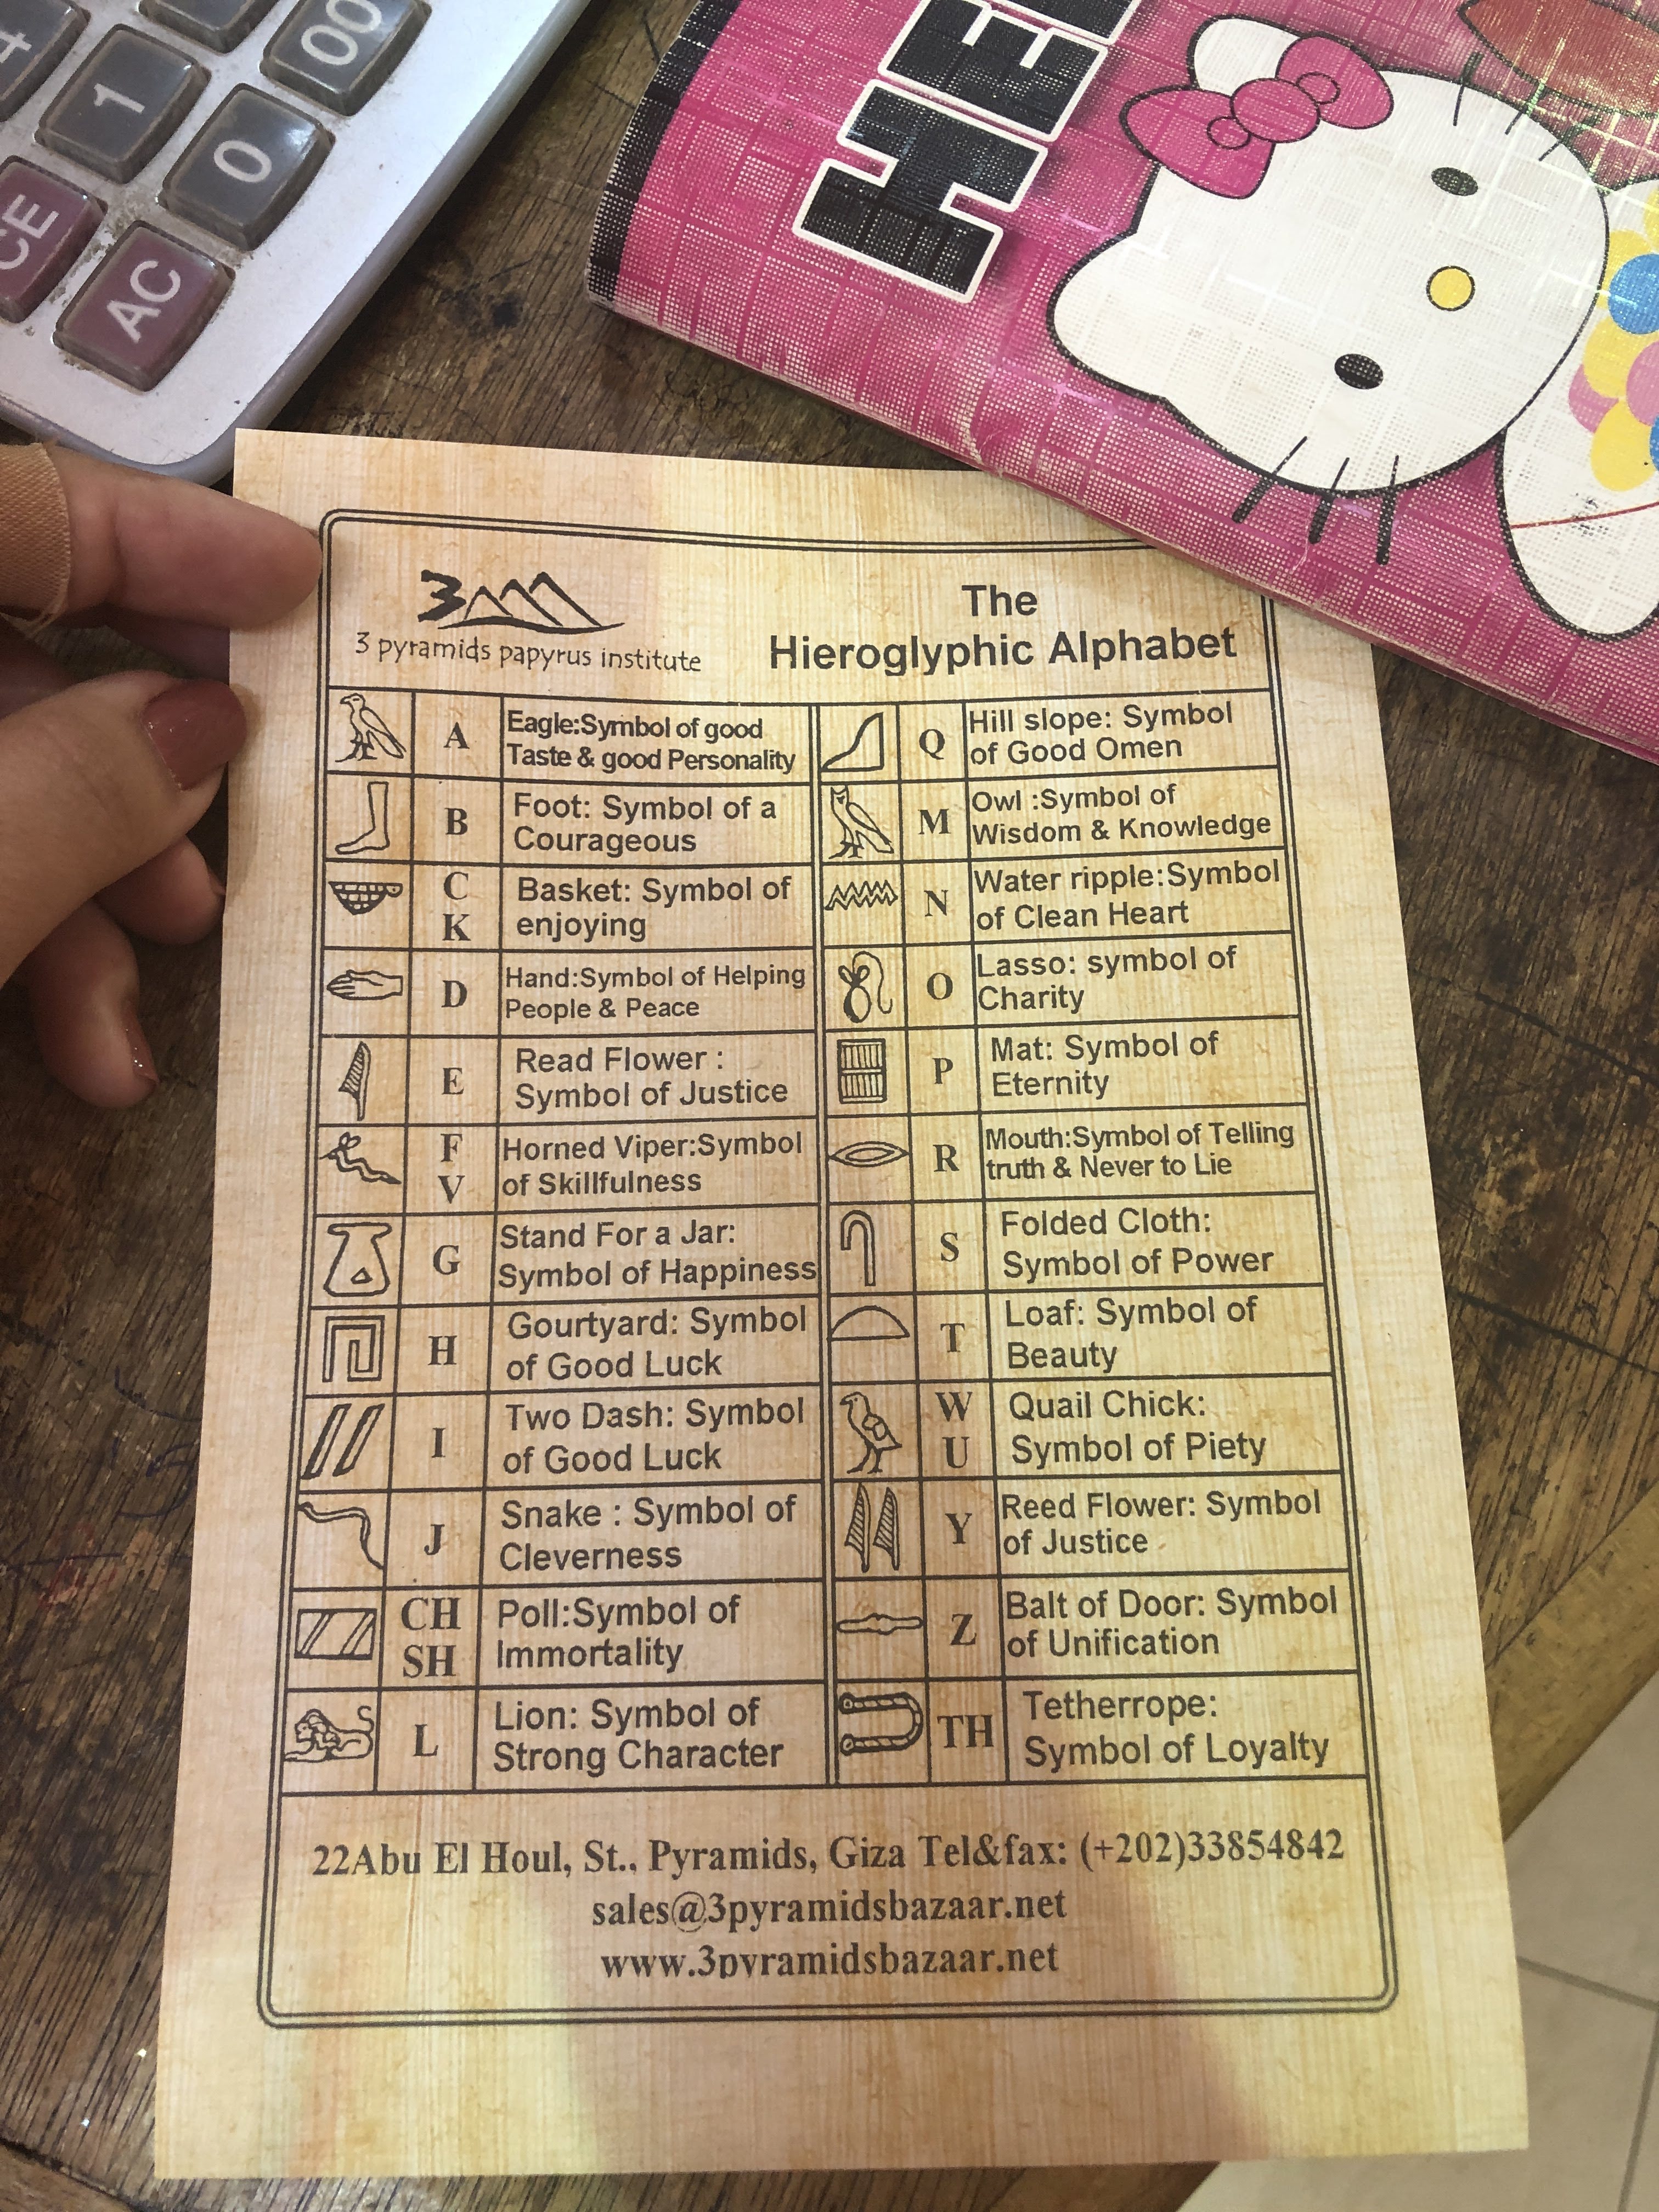 4
1
00
0
CE
AC
HE
3
3 pyramids papyrus institute
The
Hieroglyphic Alphabet
A
Eagle:Symbol of good
Taste & good Personality
B
Foot: Symbol of a
Courageous
C
K
Basket: Symbol of
enjoying
D
Hand:Symbol of Helping
People & Peace
E
Read Flower :
Symbol of Justice
F
V
Horned Viper:Symbol
of Skillfulness
G
Stand For a Jar:
Symbol of Happiness
H
Gourtyard: Symbol
of Good Luck
I
Two Dash: Symbol
of Good Luck
J
Snake : Symbol of
Cleverness
CH
SH
Poll:Symbol of
Immortality
L
Lion: Symbol of
Strong Character
Q
Hill slope: Symbol
of Good Omen
M
Owl :Symbol of
Wisdom & Knowledge
N
Water ripple:Symbol
of Clean Heart
O
Lasso: symbol of
Charity
P
Mat: Symbol of
Eternity
R
Mouth:Symbol of Telling
truth & Never to Lie
S
Folded Cloth:
Symbol of Power
T
Loaf: Symbol of
Beauty
W
U
Quail Chick:
Symbol of Piety
Y
Reed Flower: Symbol
of Justice
Z
Balt of Door: Symbol
of Unification
TH
Tetherrope:
Symbol of Loyalty
22Abu El Houl, St., Pyramids, Giza Tel&fax: (+202)33854842
sales@3pyramidsbazaar.net
www.3pyramidsbazaar.net